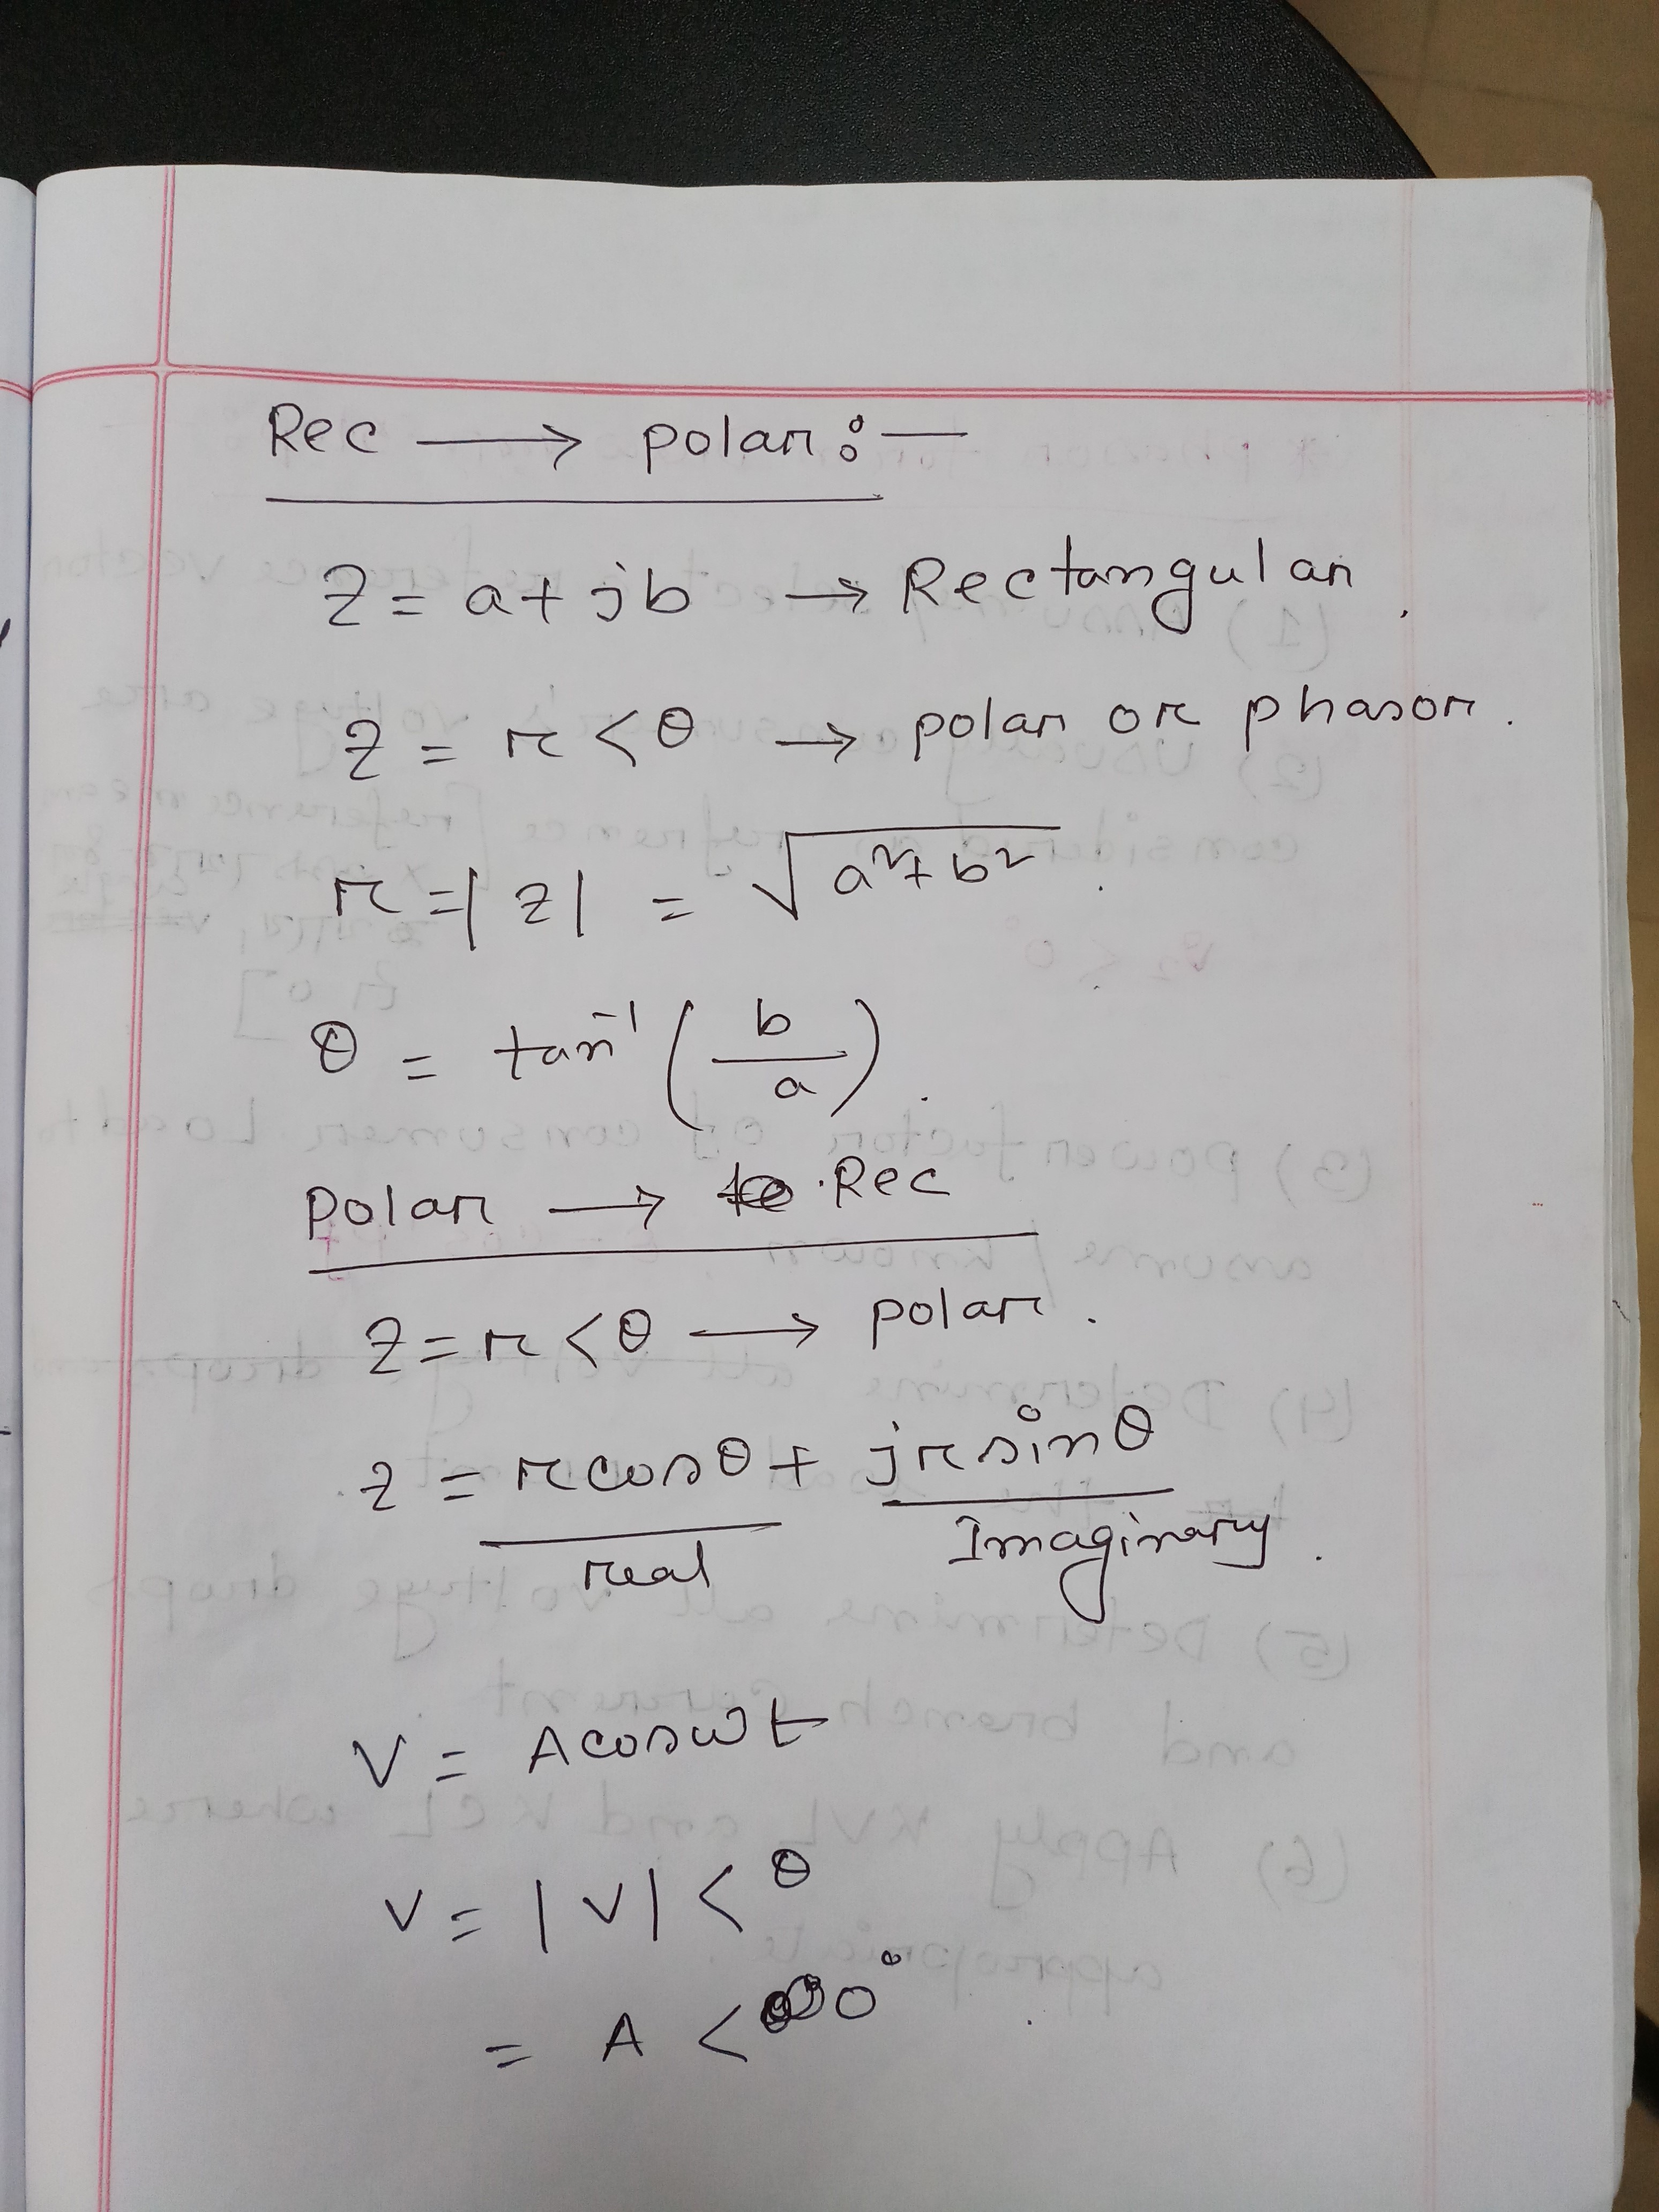 Rec ⟶ polar :—
Z = a + jb → Rectangular.
Z = r < θ → polar or phasor.
r = |Z| = √(a² + b²).
θ = tan⁻¹ (b/a).
Polar → Rec
Z = r < θ ⟶ polar.
Z = r cos θ + j r sin θ
real Imaginary.
V = A cos ωt
V = |V| < θ
= A < 0°